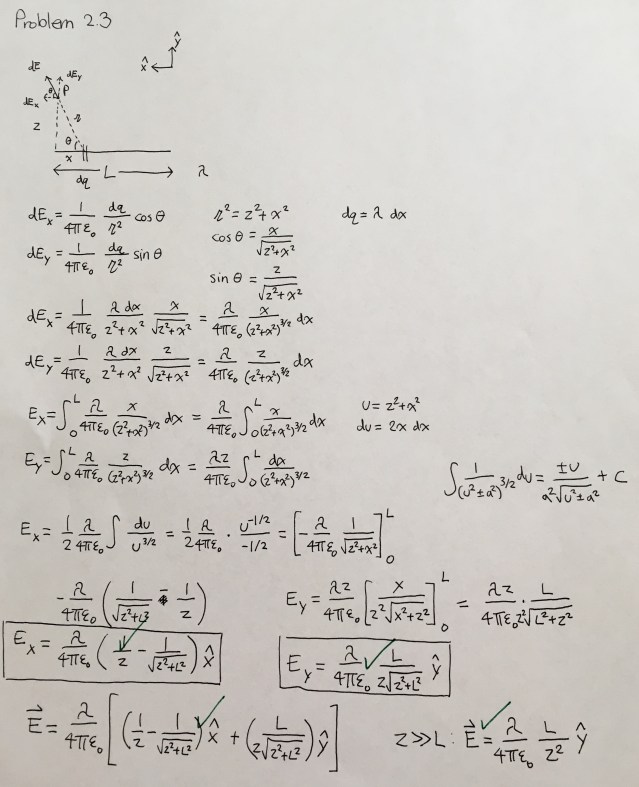 Problem 2.3
ŷ
x̂
dE
dE_y
dE_x
θ
P
z
𝓇
θ
x
L
λ
dq
dE_x = 1/(4πε₀) dq/𝓇² cos θ    𝓇² = z² + x²    dq = λ dx
cos θ = x/√(z²+x²)
dE_y = 1/(4πε₀) dq/𝓇² sin θ
sin θ = z/√(z²+x²)
dE_x = 1/(4πε₀) λ dx/(z²+x²) x/√(z²+x²) = λ/(4πε₀) x/(z²+x²)^(3/2) dx
dE_y = 1/(4πε₀) λ dx/(z²+x²) z/√(z²+x²) = λ/(4πε₀) z/(z²+x²)^(3/2) dx
E_x = ∫₀^L λ/(4πε₀) x/(z²+x²)^(3/2) dx = λ/(4πε₀) ∫₀^L x/(z²+x²)^(3/2) dx    u = z²+x²
du = 2x dx
E_y = ∫₀^L λ/(4πε₀) z/(z²+x²)^(3/2) dx = λz/(4πε₀) ∫₀^L dx/(z²+x²)^(3/2)
∫ 1/(u²±a²)^(3/2) du = ±u/(a²√(u²±a²)) + C
E_x = 1/2 λ/(4πε₀) ∫ du/u^(3/2) = 1/2 λ/(4πε₀) · u^(-1/2)/(-1/2) = [-λ/(4πε₀) 1/√(z²+x²)]₀^L
-λ/(4πε₀) (1/√(z²+L²) - 1/z)    E_y = λz/(4πε₀) [x/(z²√(x²+z²))]₀^L = λz/(4πε₀z²) · L/√(L²+z²)
E_x = λ/(4πε₀) (1/z - 1/√(z²+L²)) x̂    E_y = λ/(4πε₀) L/(z√(z²+L²)) ŷ
E⃗ = λ/(4πε₀) [(1/z - 1/√(z²+L²)) x̂ + (L/(z√(z²+L²))) ŷ]    z >> L: E⃗ = λ/(4πε₀) L/z² ŷ